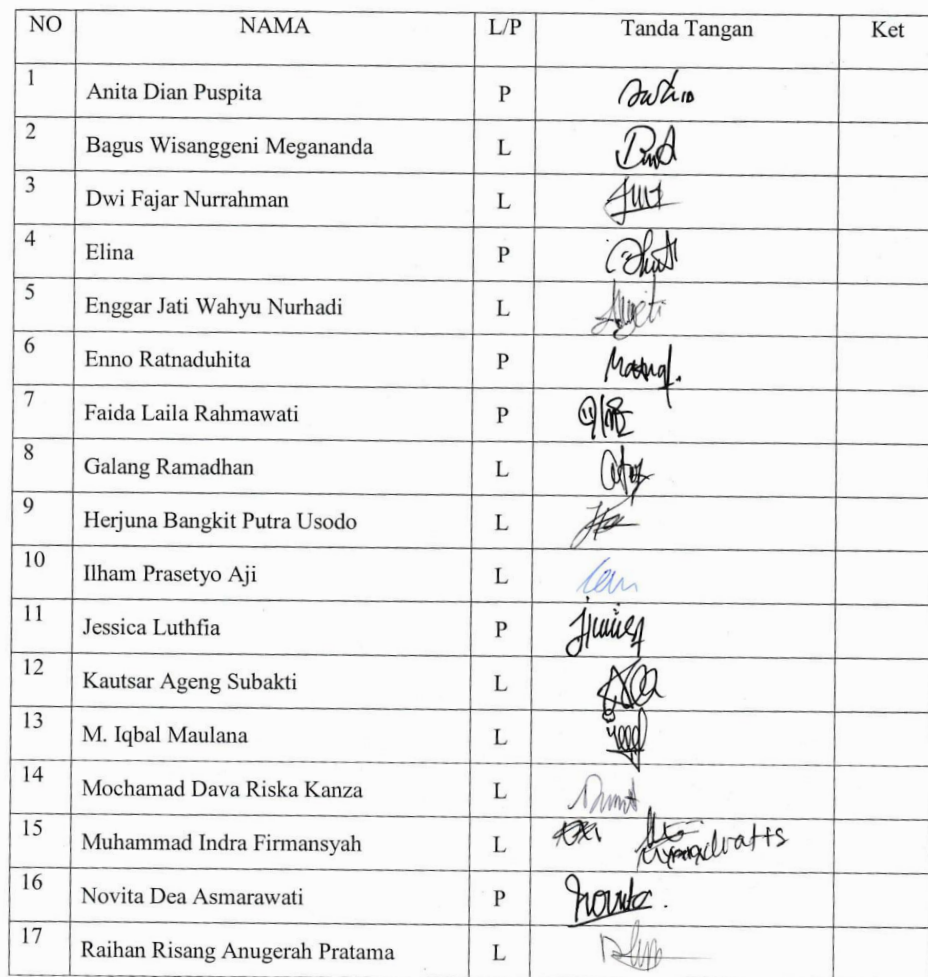 NO NAMA L/P Tanda Tangan Ket
1 Anita Dian Puspita P
2 Bagus Wisanggeni Megananda L
3 Dwi Fajar Nurrahman L
4 Elina P
5 Enggar Jati Wahyu Nurhadi L
6 Enno Ratnaduhita P
7 Faida Laila Rahmawati P
8 Galang Ramadhan L
9 Herjuna Bangkit Putra Usodo L
10 Ilham Prasetyo Aji L
11 Jessica Luthfia P
12 Kautsar Ageng Subakti L
13 M. Iqbal Maulana L
14 Mochamad Dava Riska Kanza L
15 Muhammad Indra Firmansyah L
16 Novita Dea Asmarawati P Novita.
17 Raihan Risang Anugerah Pratama L